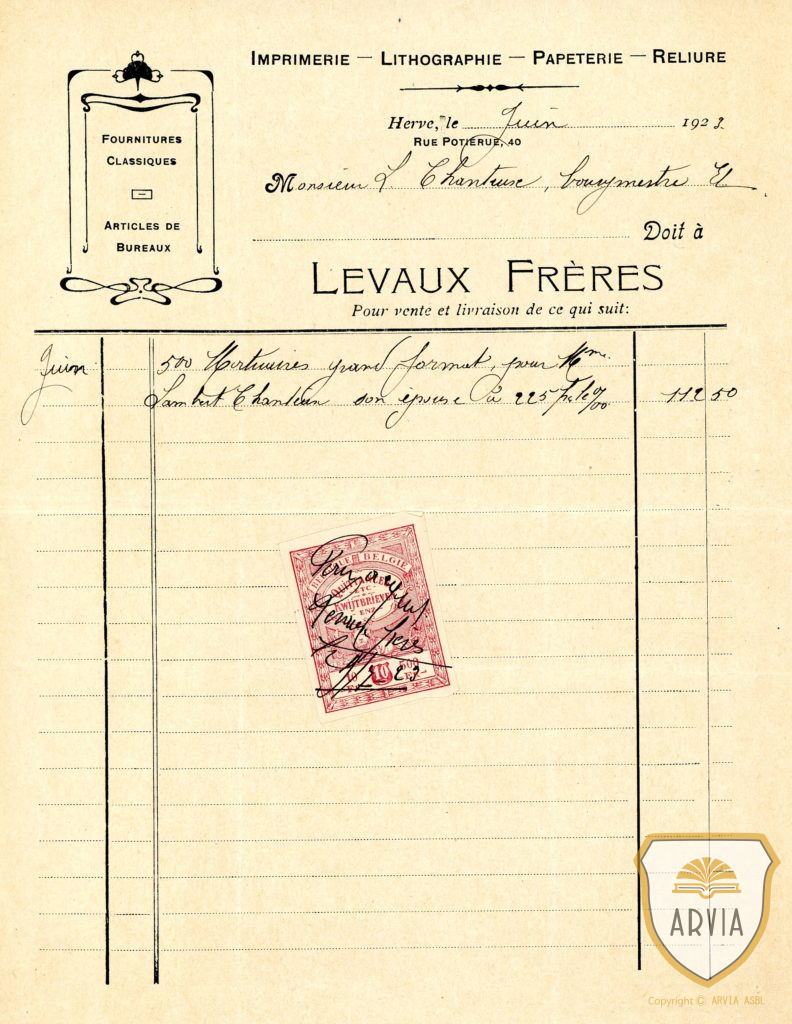 IMPRIMERIE — LITHOGRAPHIE — PAPETERIE — RELIURE
FOURNITURES
CLASSIQUES
ARTICLES DE
BUREAUX
Herve, le Juin 1923.
RUE POTIERUE, 40
Monsieur L. Chanteuse, bourgmestre
Doit à
LEVAUX FRÈRES
Pour vente et livraison de ce qui suit:
Juin 500 Mortuaires grand format, pour Mme.
Lambert Chanteux son épouse à 225 fr le %00 112 50
BELGIE
QUITTANCES
ETC
KWIJTBRIEVEN
ENZ
Pour acquit
Frères
10 10 500
23
ARVIA
Copyright © ARVIA ASBL